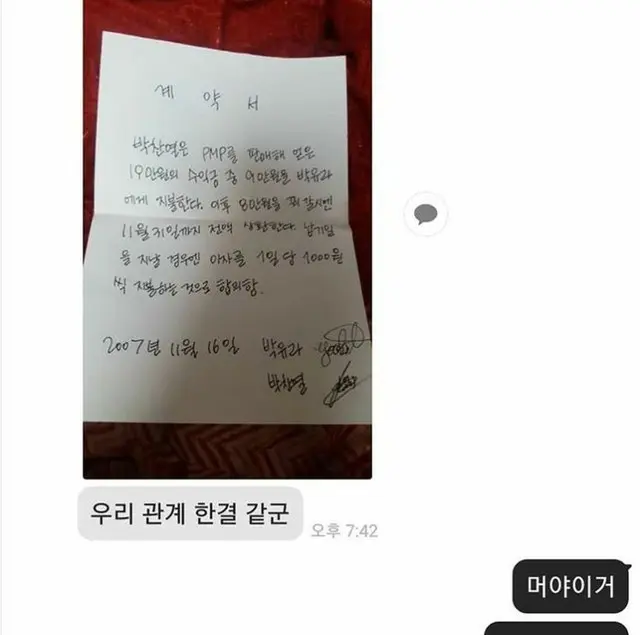 계 약 서
박찬열은 PMP를 판매해 얻은
19만원의 수익금 중 9만원을 박유라
에게 지불한다. 이후 8만원을 꿔 갈시엔
11월 31일까지 전액 상환한다. 납기일
을 지날 경우엔 이자를 1일 당 1000원
씩 지불하는 것으로 합의함.
2007년 11월 16일 박유라
박찬열
우리 관계 한결 같군
오후 7:42
머야이거